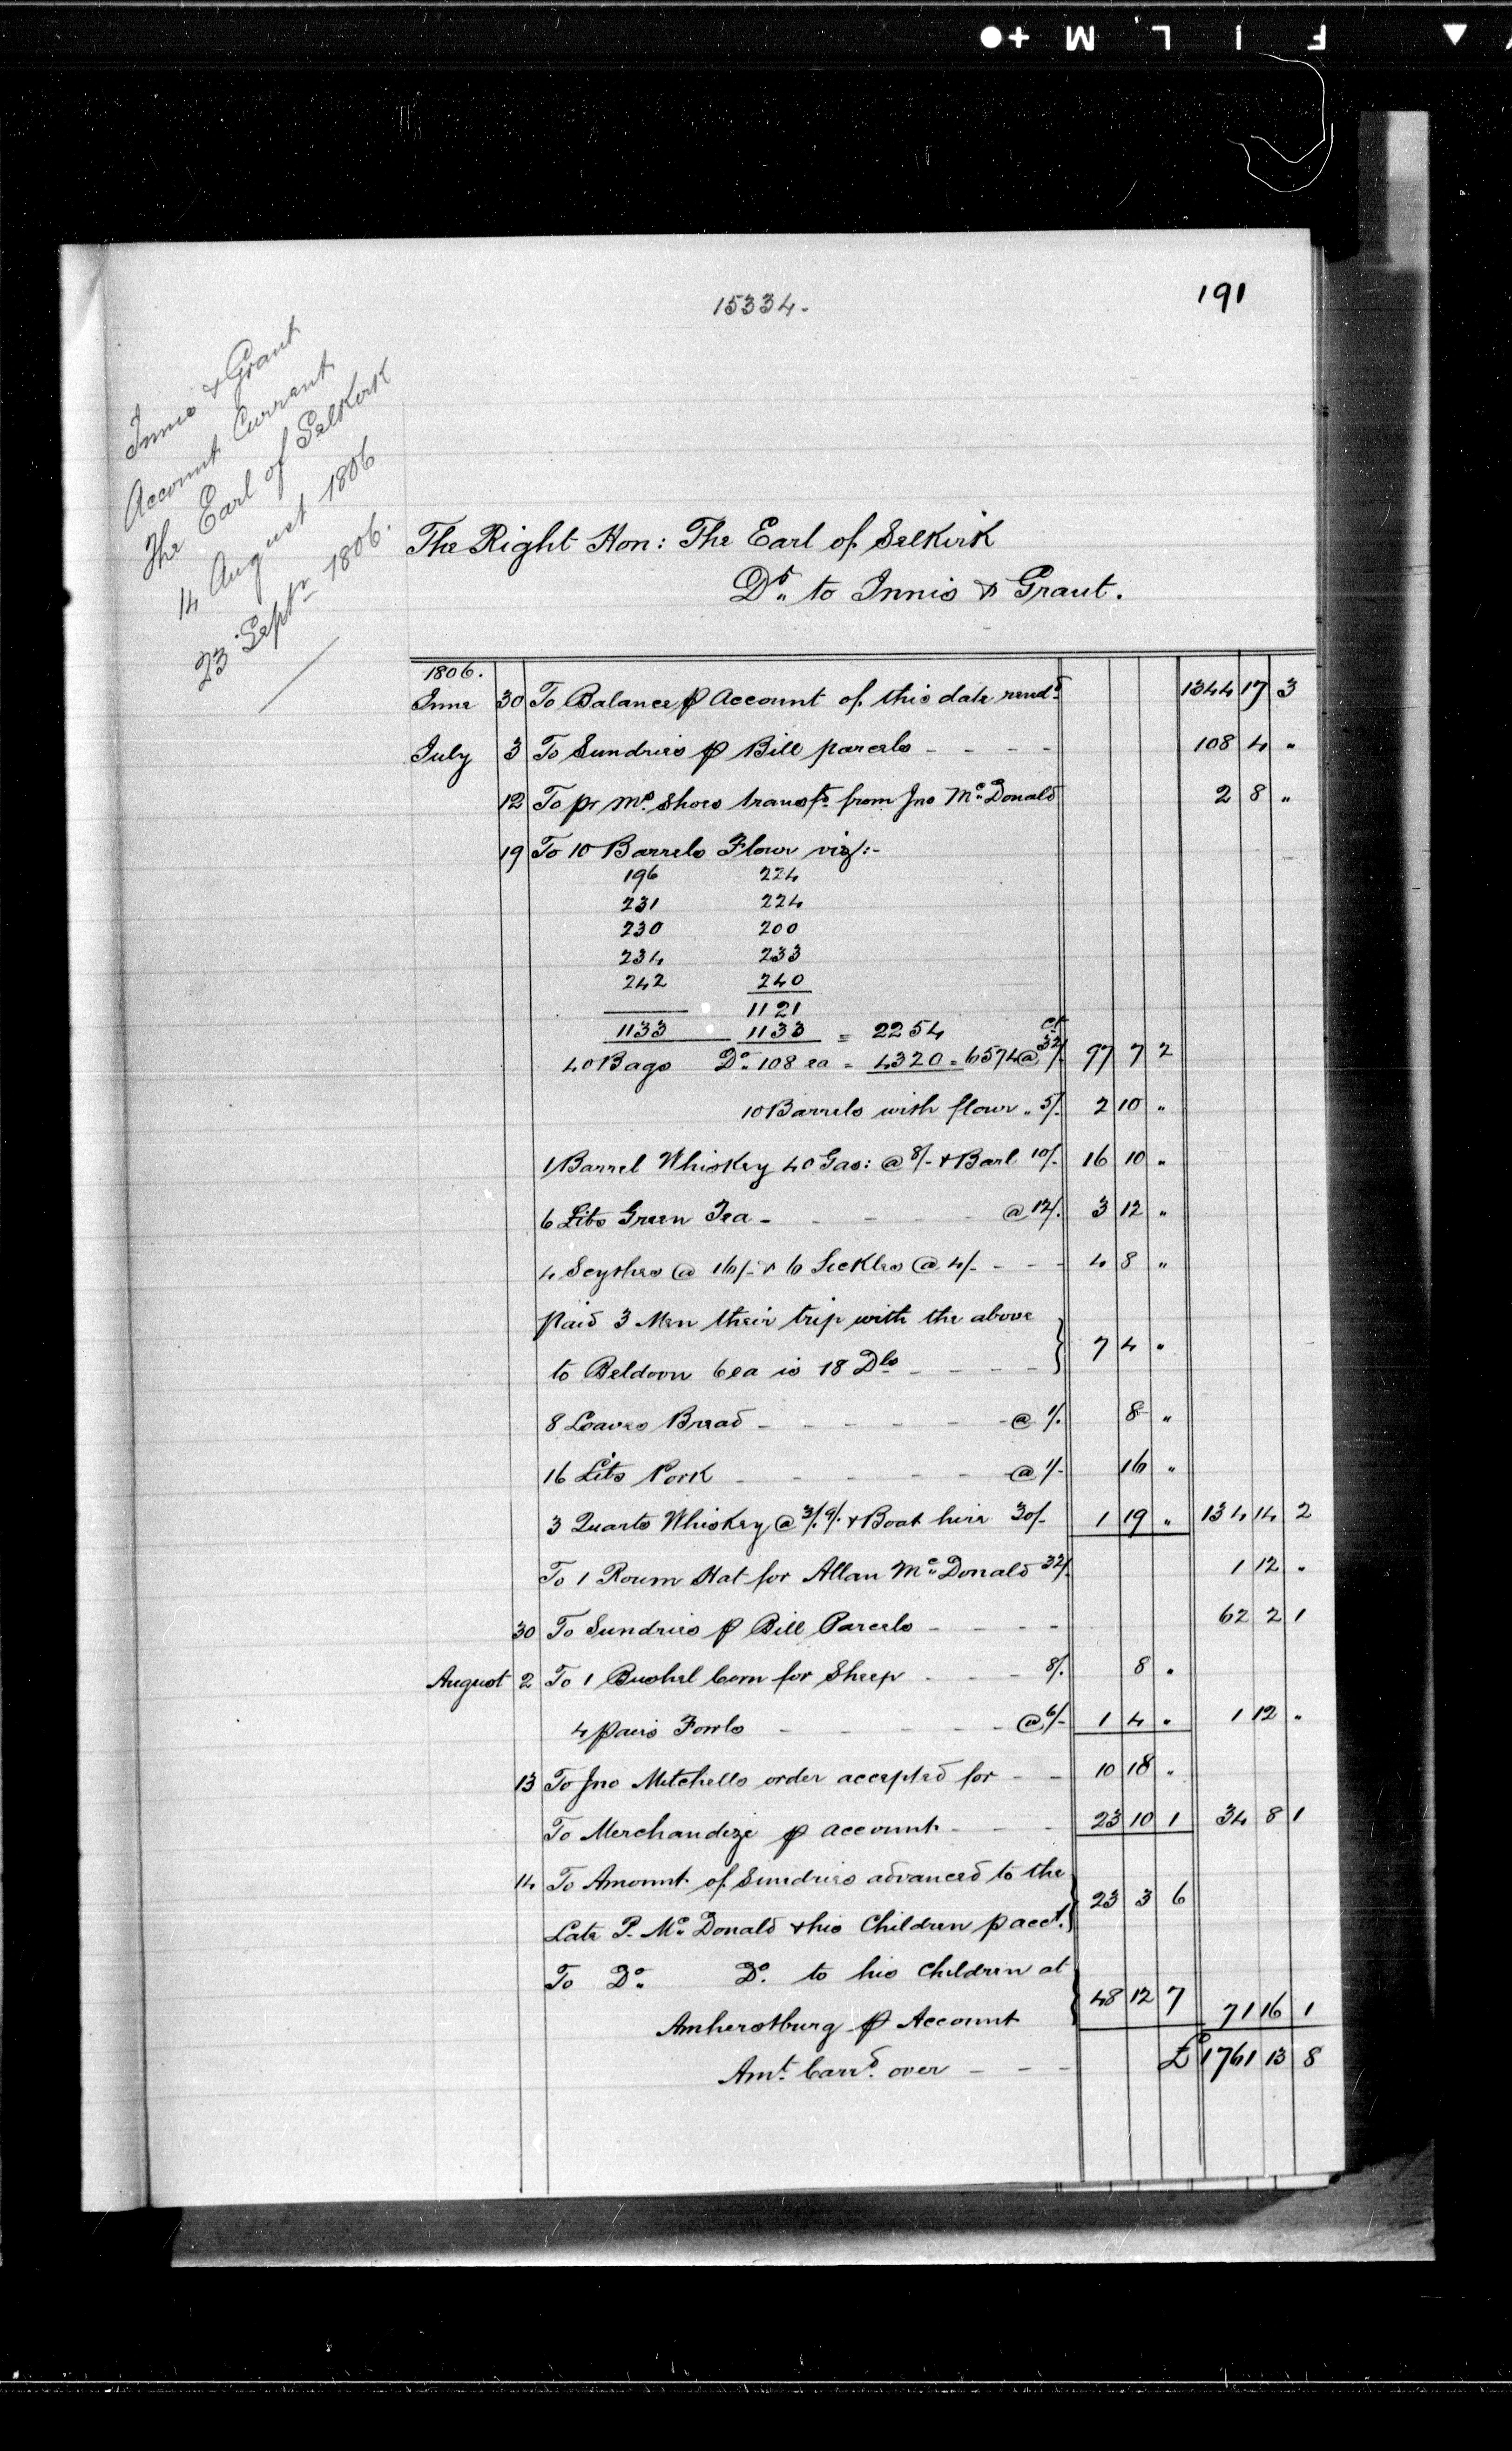 F I L M +
15334.
191
Innis & Grant
Account Currant
The Earl of Selkirk
14 August 1806
23 Septr 1806.
The Right Hon: The Earl of Selkirk
Dr. to Innis & Grant.
1806.
June 30 To Balance ⅌ Account of this date rendd 1344 17 3
July 3 To Sundries ⅌ Bill parcels - - - - 108 4 "
12 To pr Ms. Shoes transfd. from Jno McDonald 2 8 "
19 To 10 Barrels Flour viz:-
196 224
231 224
230 200
234 233
242 240
1121
1133 1133 = 2254 Ct
40 Bags Do. 108 ea = 4320 = 6574 @ 32/. 97 7 2
10 Barrels with flour " 5/. 2 10 "
1 Barrel Whiskey 40 Gas: @ 8/- & Barl 10/. 16 10 "
6 Lbs Green Tea - - - - - @ 12/. 3 12 "
4 Scythes @ 16/- & 6 Sickles @ 4/- - - - 4 8 "
Paid 3 Men their trip with the above
to Beldoon 6 ea is 18 Dls - - - - } 7 4 "
8 Loaves Bread - - - - - - @ 1/. 8 "
16 Lbs Pork - - - - - - @ 1/- 16 "
3 Quarts Whiskey @ 3/. 9/. & Boat hire 30/- 1 19 " 134 14 2
To 1 Roum Hat for Allan McDonald 32/. 1 12 "
30 To Sundries ⅌ Bill Parcels - - - - 62 2 1
August 2 To 1 Bushel Corn for Sheep - - - 8/. 8 "
4 pairs Fowls - - - - - - @ 6/- 1 4 " 1 12 "
13 To Jno Mitchells order accepted for - - 10 18 "
To Merchandize ⅌ account - - - 23 10 1 34 8 1
14 To Amount of Sundries advanced to the
Late P. McDonald & his Children p acct. } 23 3 6
To Do. Do. to his Children at
Amherstburg ⅌ Account } 48 12 7 71 16 1
Amt. Carrd. over - - - £ 1761 13 8